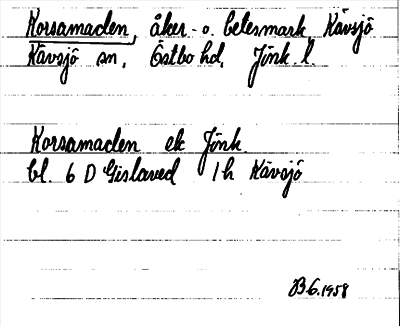 Korsamaden, åker- o. betesmark, Kävsjö
Kävsjö sn, Östbo hd, Jönk. l.
Korsamaden ek Jönk
bl. 6 D Gislaved 1h Kävsjö
1958